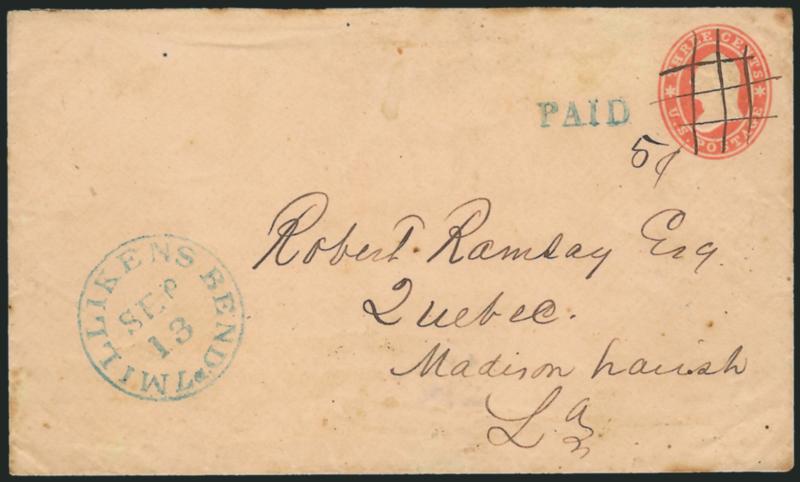 THREE CENTS
U.S. POSTAGE
PAID
5¢
Robert Ramsay Esq.
Quebec.
Madison Parish
La
MILLIKENS BEND La
SEP
13